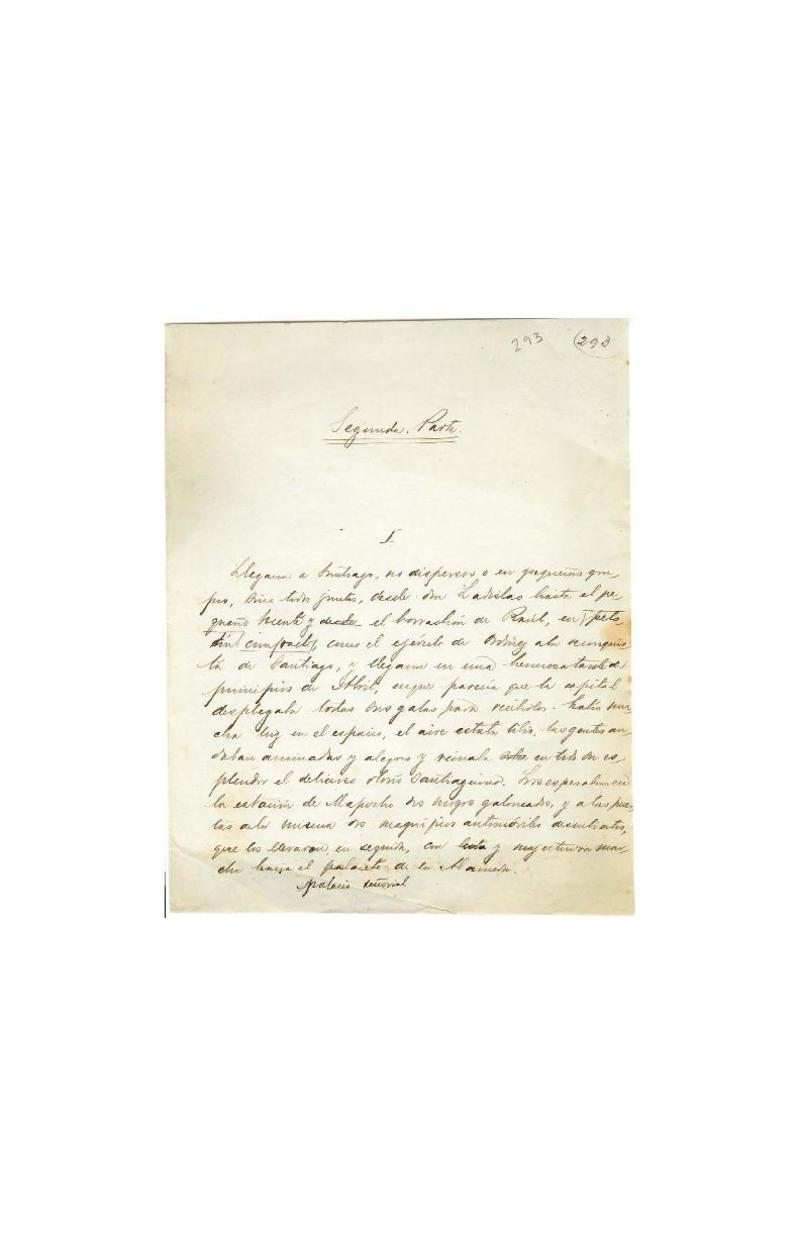 293 (293
Segunda Parte.
I.
Llegaron a Santiago, no dispersos o en pequeños gru-
pos, sino todos juntos, desde don Ladislao hasta el pe-
queño Vicente y desde el borrachón de Raúl, en pelo-
tón compacto, como el ejército de a la reconquis-
ta de Santiago, y llegaron en una hermosa tarde de
principios de Abril, en que parecía que la capital
desplegaba todas sus galas para recibirlos. Había mu-
cha luz en el espacio, el aire estaba tibio, las gentes an-
daban animadas y alegres y reinaba sobre en todo su es-
plendor el delicioso otoño Santiaguino. Los esperaban en
la estación de Mapocho dos negros galoneados, y a las puer-
tas de la misma dos magníficos automóviles
que los llevaron, en seguida, con lenta y majestuosa mar-
cha hacia el palacete de la Alameda.
palacio señorial